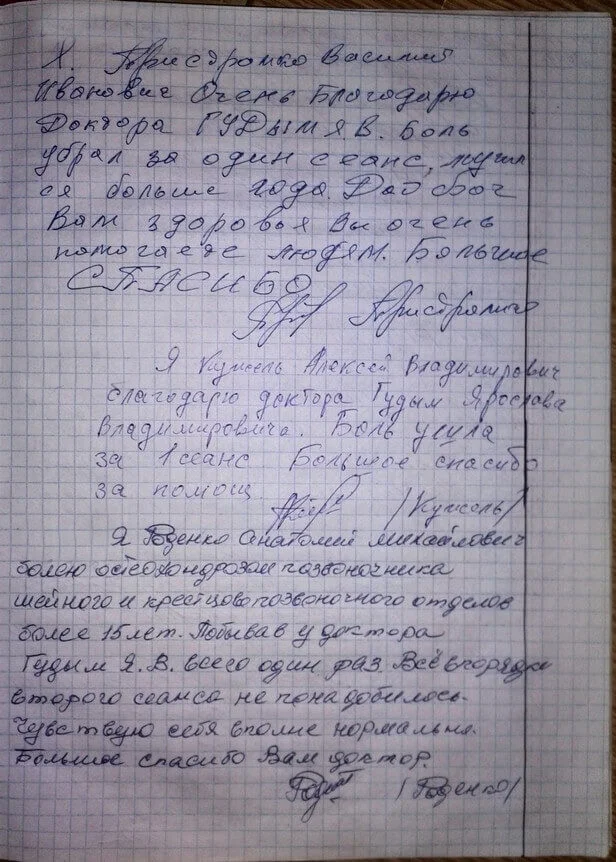 Х. Пристромко Василий
Иванович Очень Благодарю
Доктора ГУДЫМ Я.В. Боль
убрал за один сеанс, мучил
ся больше года. Дай бог
Вам здоровья Вы очень
помогаете людям. Большое
СПАСИБО
Я Кужель Алексей Владимирович
благодарю доктора Гудым Ярослава
Владимировича. Боль ушла
за 1 сеанс. Большое спасибо
за помощ.
/Кужель/
Я Роденко Анатолий Михайлович
болею остеохондрозом позвоночника
шейного и крестцово позвоночного отделов
более 15 лет. Побывав у доктора
Гудым Я. В. всего один раз. Всё в порядке
второго сеанса не понадобилось.
Чувствую себя вполне нормально.
Большое спасибо Вам доктор.
/Роденко/